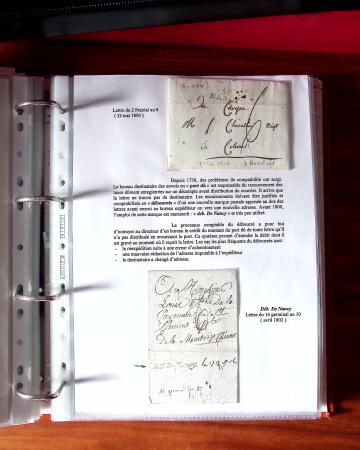 Lettre du 2 Prairial an 8
( 22 mai 1800 )
Au
Citoyen
M
à Colmar
Depuis 1738, des problèmes de comptabilité ont surgi.
Le bureau destinataire des envois en « port dû » est responsable du recouvrement des
taxes dûment enregistrées sur un décompte avant distribution du courrier. Il arrive que
la lettre ne trouve pas de destinataire. Les encaissements doivent être justifiés et
comptabilisés en « déboursés » d'où une nouvelle marque postale apposée au dos des
lettres avant renvoi au bureau expéditeur ou vers une nouvelle adresse. Avant 1800,
l'emploi de cette marque est manuscrit : « déb. De Nancy » et très peu utilisé
Le processus comptable du déboursé a pour but
d'envoyer au directeur d'un bureau le crédit du montant du port dû de toute lettre qu'il
n'a pas distribuée en encaissant le port. Ce système permet d'annuler le débit dont il
est grevé au moment où il reçoit la lettre. Les cas les plus fréquents du déboursés sont :
- la réexpédition suite à une erreur d'acheminement
- une mauvaise rédaction de l'adresse imputable à l'expéditeur
- le destinataire a changé d'adresse.
Déb. De Nancy
Lettre du 16 germinal an 10
( avril 1802 )
Louis
de la
de la Meurthe